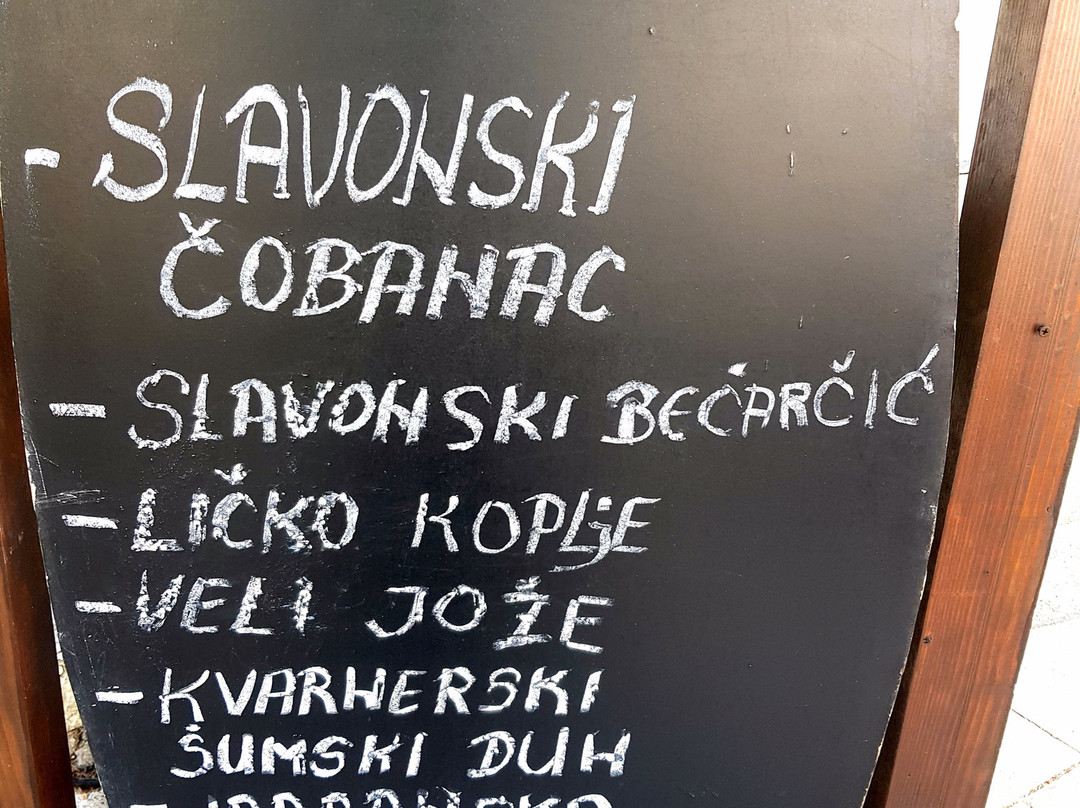 - SLAVONSKI
ČOBANAC
- SLAVONSKI BEĆARČIĆ
- LIČKO KOPLjE
- VELI JOŽE
- KVARNERSKI
ŠUMSKI DUH